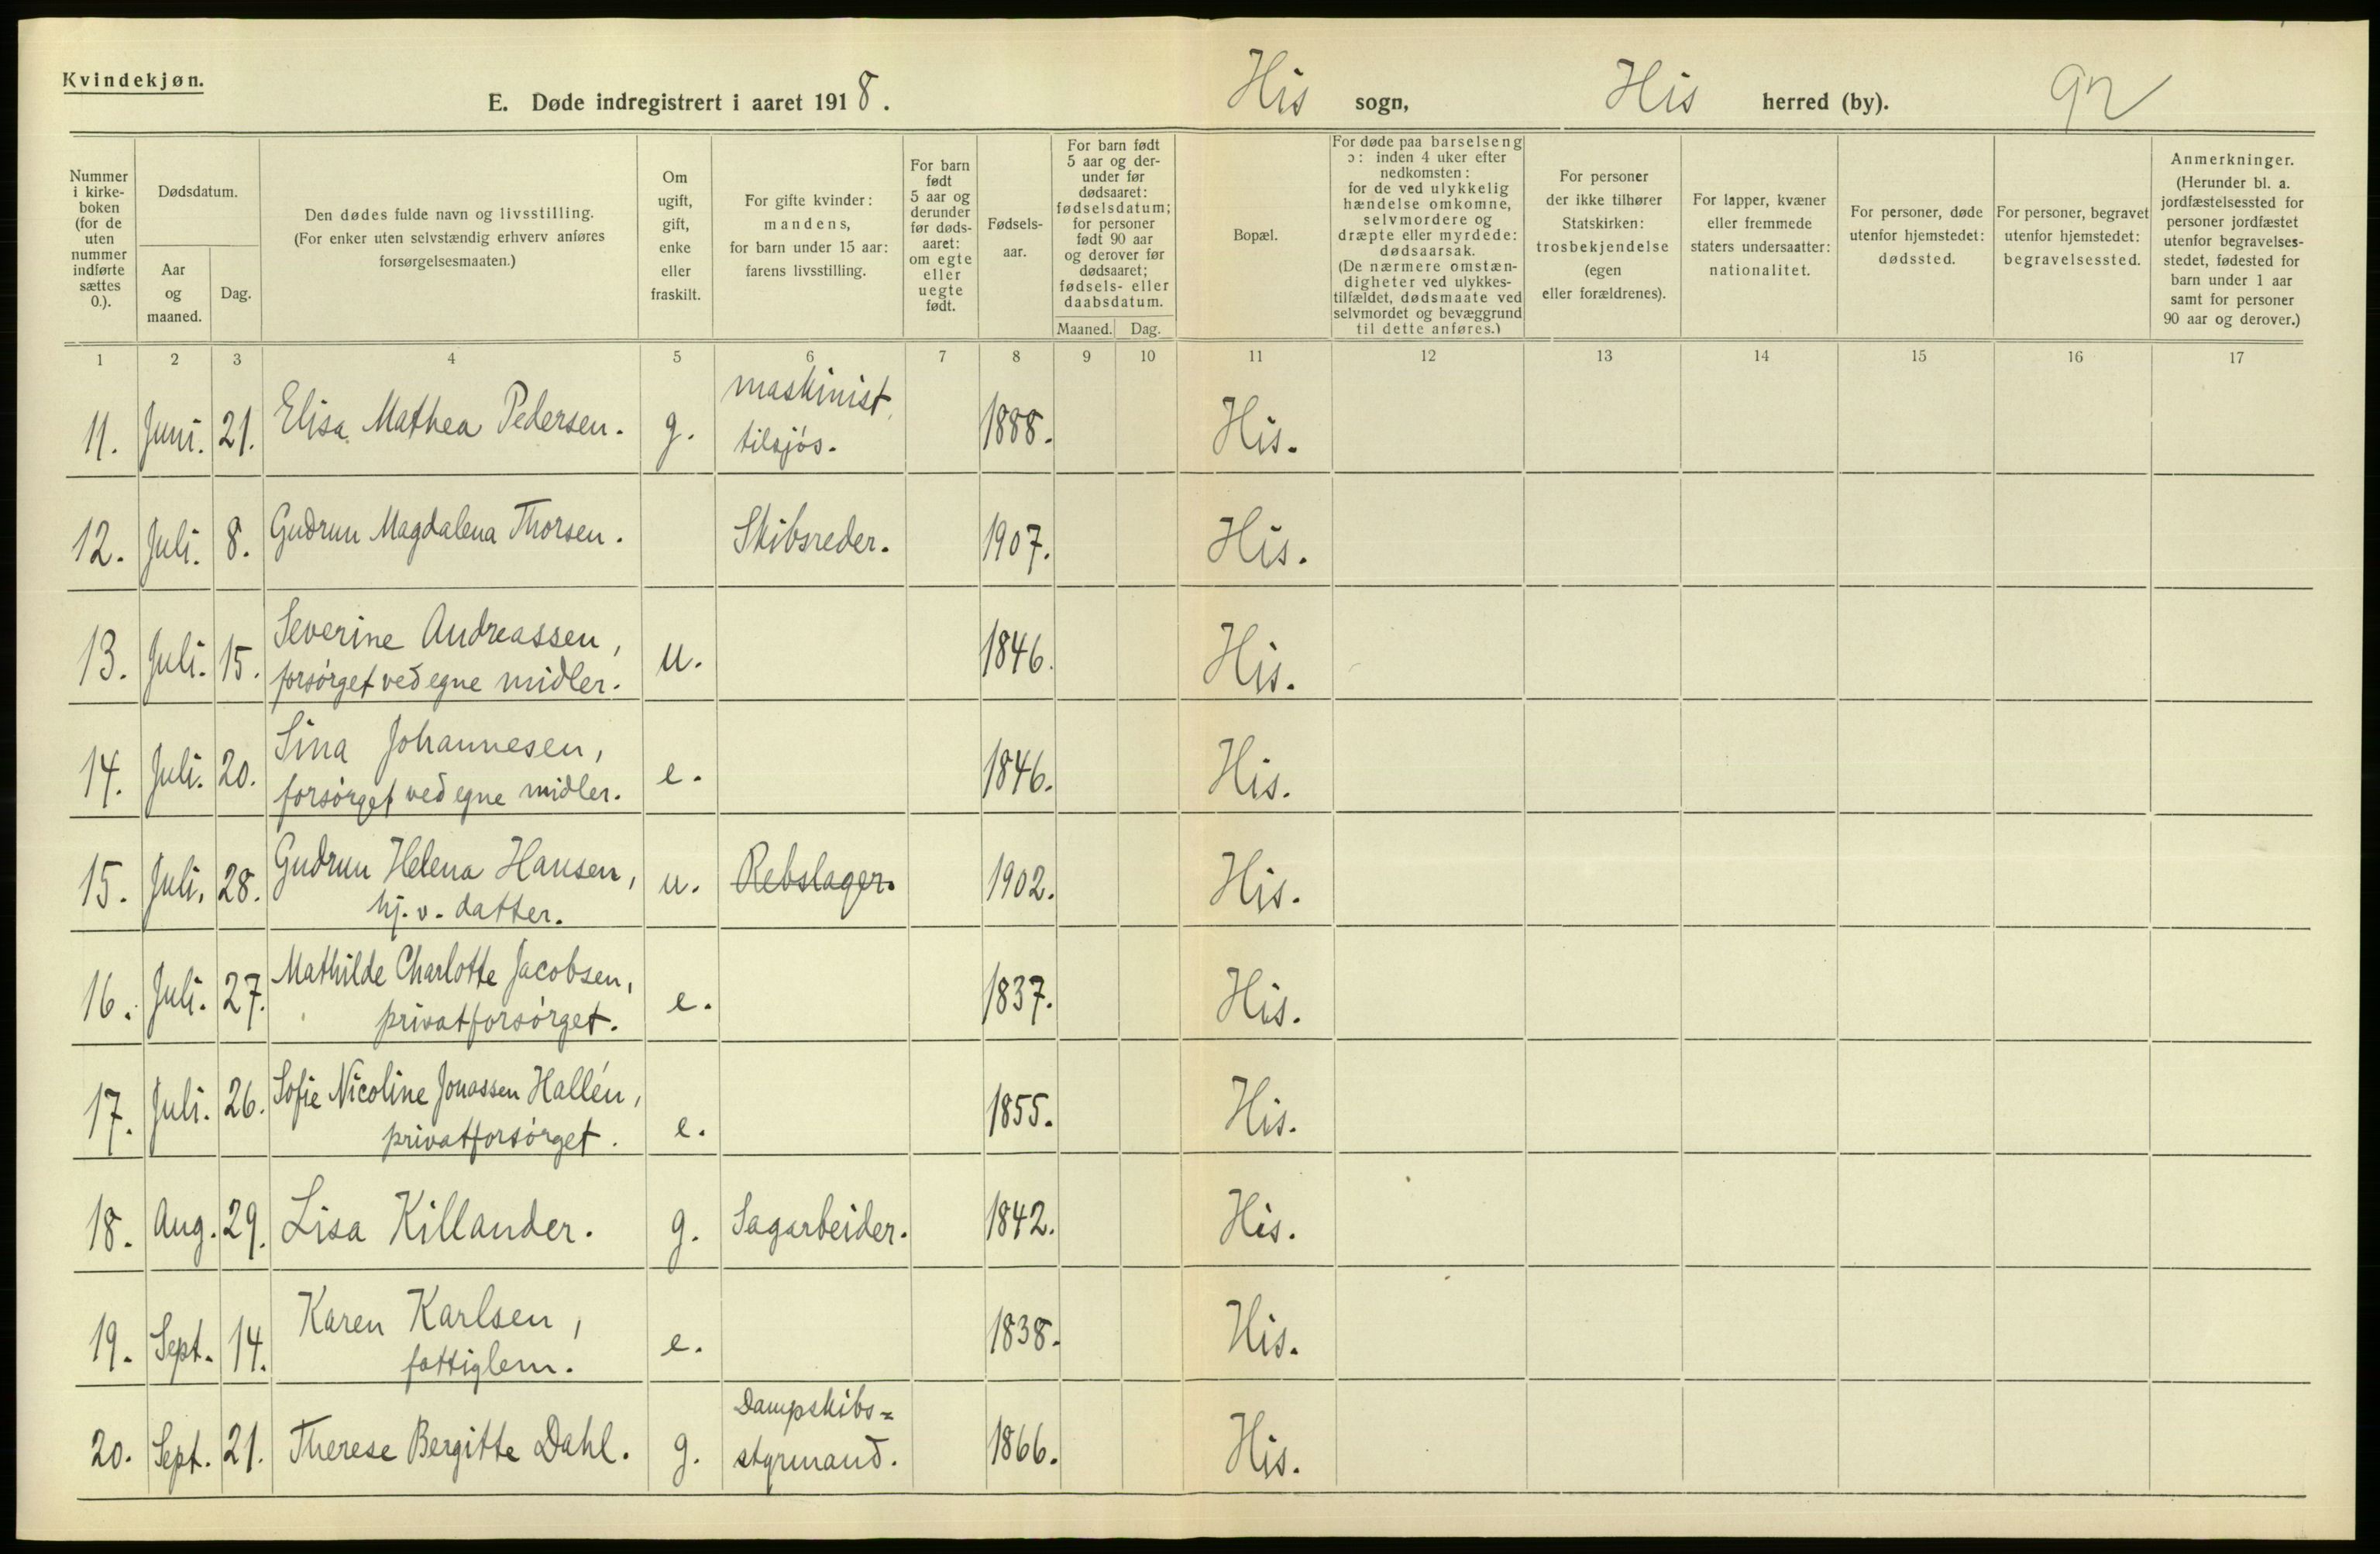 Kvindekjøn.
E. Døde indregistrert i aaret 1918.
His sogn, His herred (by). 92
Nummer i kirke-boken (for de uten nummer indførte sættes 0.).
Dødsdatum.
Aar og maaned.
Dag.
Den dødes fulde navn og livsstilling.
(For enker uten selvstændig erhverv anføres forsørgelsesmaaten.)
Om ugift, gift, enke eller fraskilt.
For gifte kvinder: mandens, for barn under 15 aar: farens livsstilling.
For barn født 5 aar og derunder før døds-aaret: om egte eller uegte født.
Fødsels-aar.
For barn født 5 aar og der-under før dødsaaret: fødselsdatum; for personer født 90 aar og derover før dødsaaret; fødsels- eller daabsdatum.
Maaned. Dag.
Bopæl.
For døde paa barselseng ɔ: inden 4 uker efter nedkomsten: for de ved ulykkelig hændelse omkomne, selvmordere og dræpte eller myrdede: dødsaarsak. (De nærmere omstæn-digheter ved ulykkes-tilfældet, dødsmaate ved selvmordet og bevæggrund til dette anføres.)
For personer der ikke tilhører Statskirken: trosbekjendelse (egen eller forældrenes).
For lapper, kvæner eller fremmede staters undersaatter: nationalitet.
For personer, døde utenfor hjemstedet: dødssted.
For personer, begravet utenfor hjemstedet: begravelsessted.
Anmerkninger. (Herunder bl. a. jordfæstelsessted for personer jordfæstet utenfor begravelses-stedet, fødested for barn under 1 aar samt for personer 90 aar og derover.)
1 2 3 4 5 6 7 8 9 10 11 12 13 14 15 16 17
11. Juni. 21. Elisa Mathea Pedersen. g. maskinist tilsjøs. 1888. His.
12. Juli. 8. Gudrun Magdalena Thorsen. Skibsreder. 1907. His.
13. Juli. 15. Severine Andreassen, u. 1846. His.
forsørget ved egne midler.
14. Juli. 20. Sina Johannesen, e. 1846. His.
forsørget ved egne midler.
15. Juli. 28. Gudrun Helena Hansen, u. Rebslager. 1902. His.
hj. v. datter.
16. Juli. 27. Mathilde Charlotte Jacobsen, e. 1837. His.
privatforsørget.
17. Juli. 26. Sofie Nicoline Jonassen Hallén, e. 1855. His.
privatforsørget.
18. Aug. 29. Lisa Killander. g. Sagarbeider. 1842. His.
19. Sept. 14. Karen Karlsen, e. 1838. His.
fattiglem.
20. Sept. 21. Therese Bergitte Dahl. g. Dampskibs=
styrmand. 1866. His.